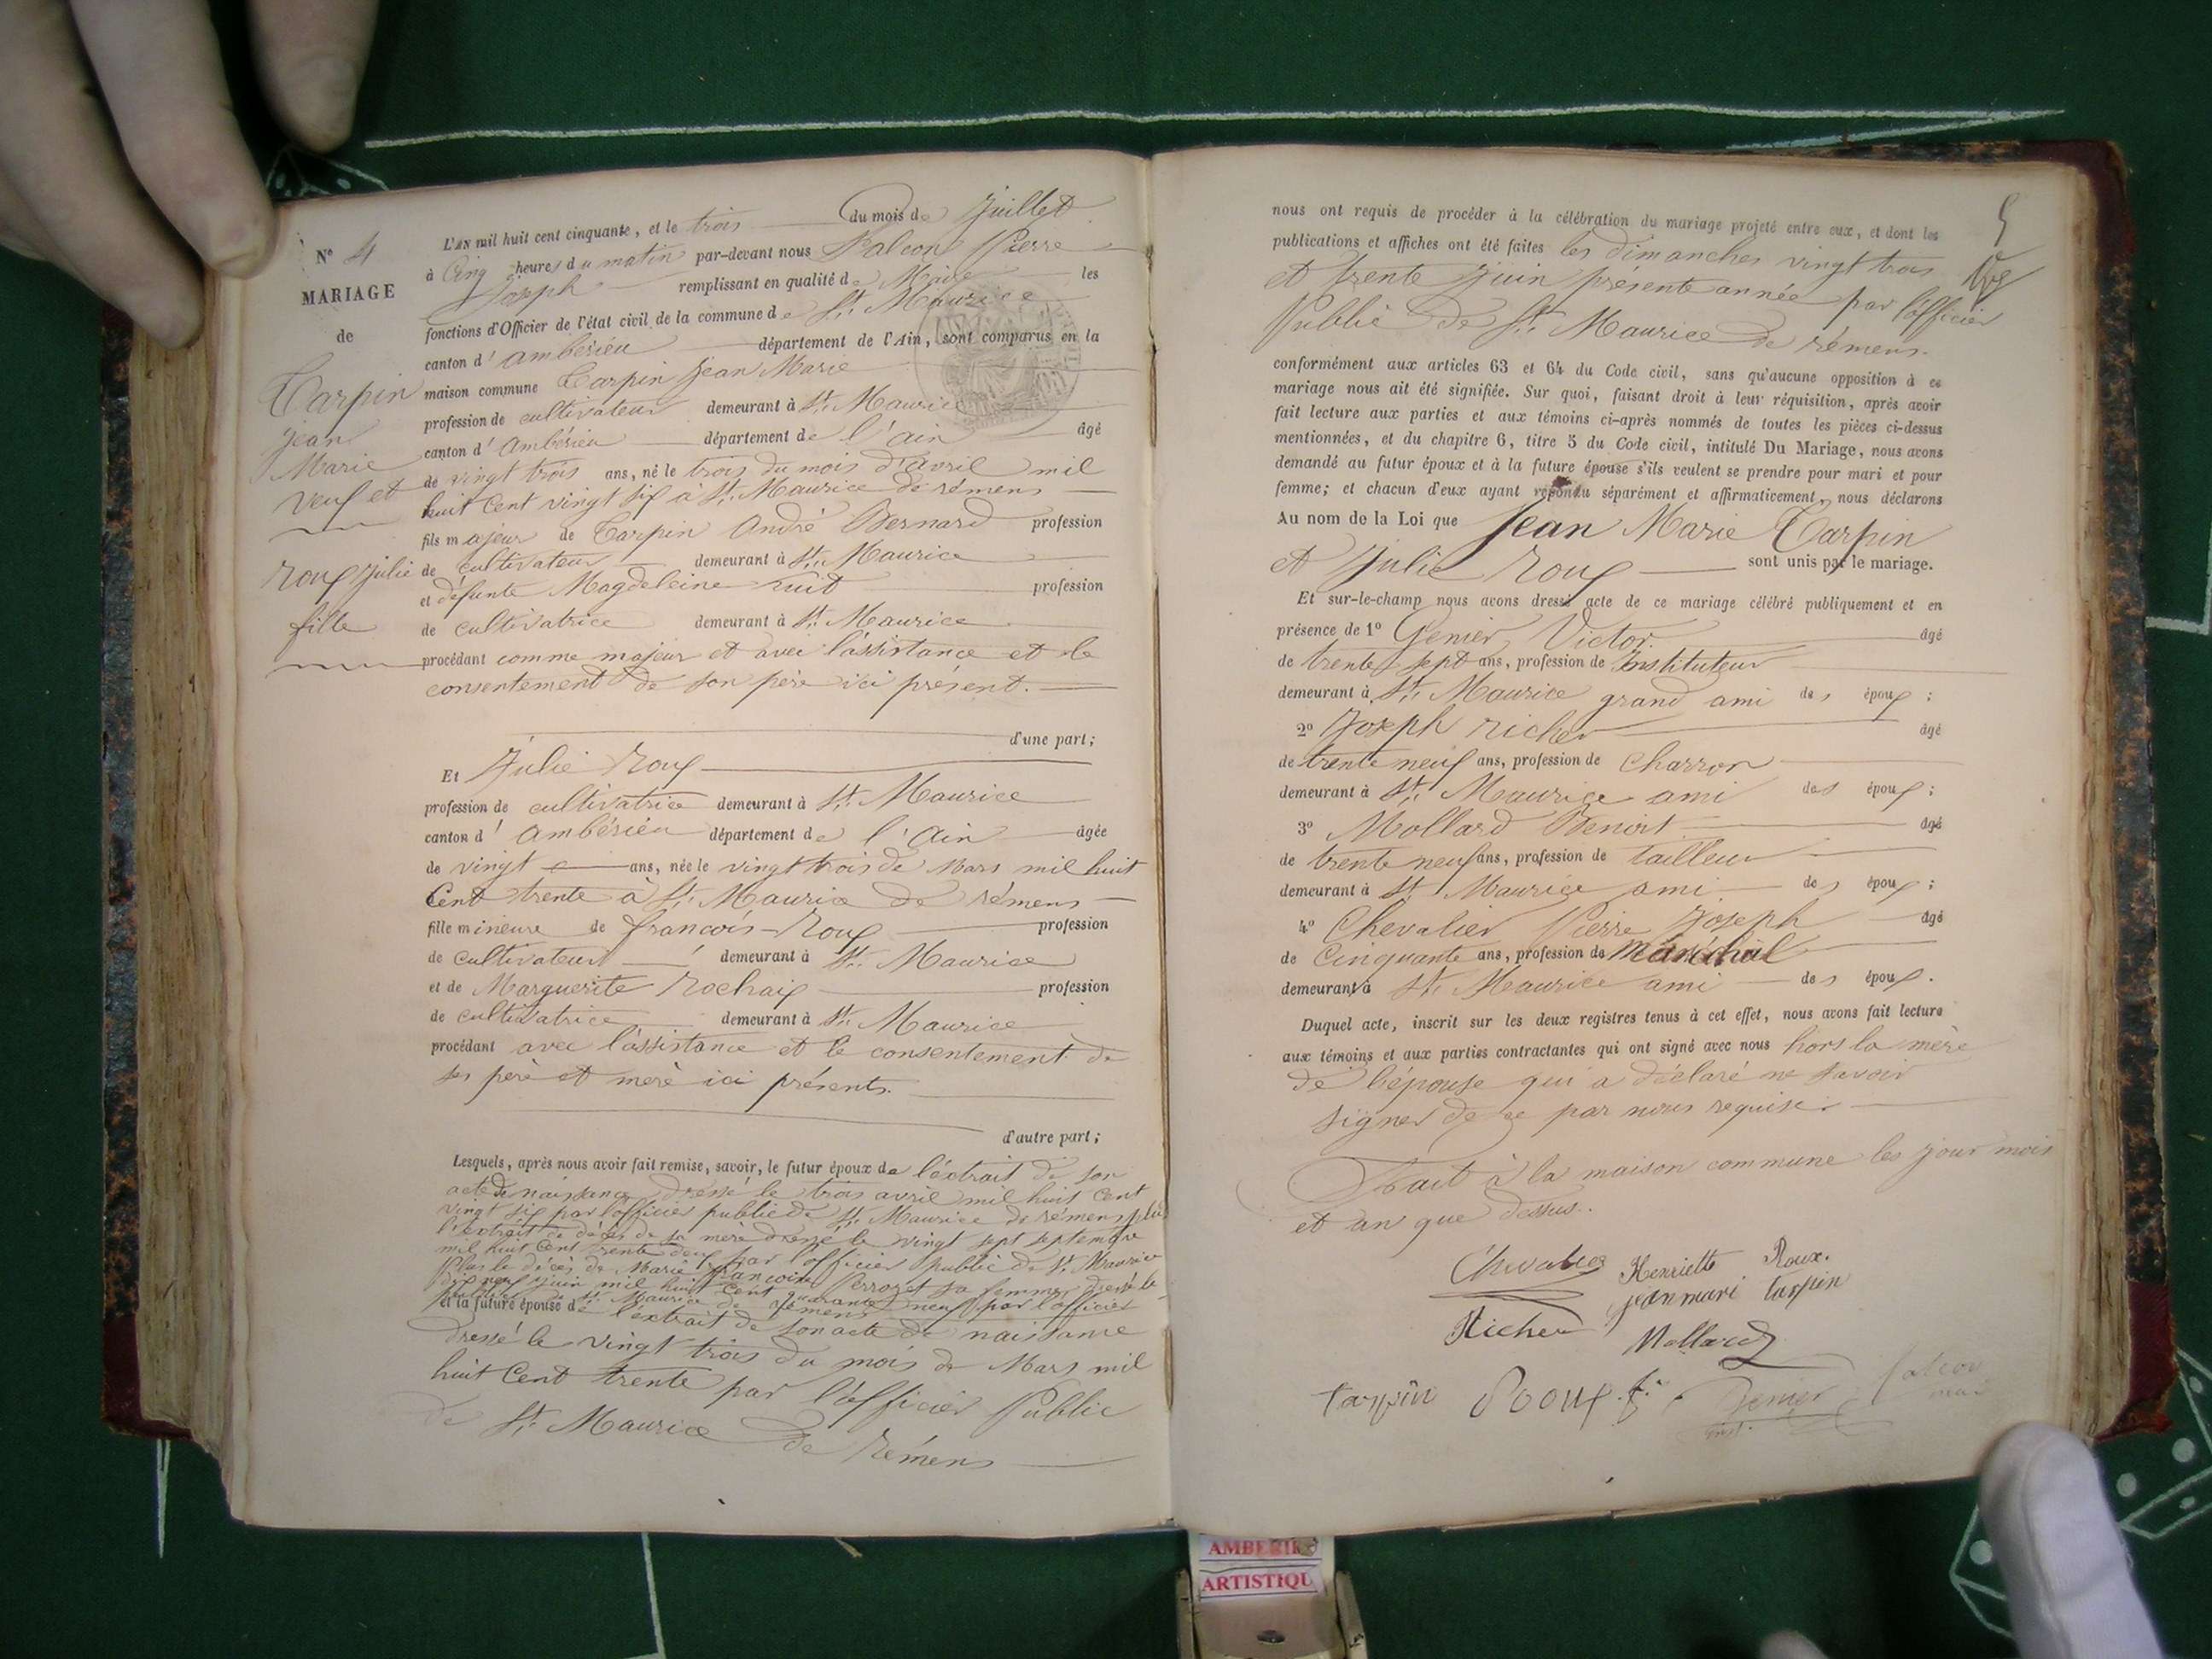 N° 4
MARIAGE
de
Carpin
Jean
Marie
veuf et
Roux Julie
fille
L'AN mil huit cent cinquante, et le trois du mois de Juillet
à Cinq heures du matin par-devant nous Falcon Pierre
Joseph remplissant en qualité de Maire les
fonctions d'Officier de l'état civil de la commune de St. Maurice
canton d'ambérieu département de l'Ain, sont comparus en la
maison commune Carpin Jean Marie
profession de cultivateur demeurant à St. Maurice
canton d'Ambérieu département de l'ain âgé
de vingt trois ans, né le trois du mois d'avril mil
huit Cent vingt six à St. Maurice de rémens
fils majeur de Carpin André Bernard profession
de cultivateur demeurant à St. Maurice
et défunte Magdeleine profession
de cultivatrice demeurant à St. Maurice
procédant comme majeur et avec l'assistance et le
consentement de son père ici présent.
d'une part;
Et Julie Roux
profession de cultivatrice demeurant à St. Maurice
canton d'ambérieu département de l'ain âgée
de vingt ans, née le vingt trois de Mars mil huit
Cent trente à St. Maurice de rémens
fille mineure de francois Roux profession
de cultivateur demeurant à St. Maurice
et de Marguerite Rochaix profession
de cultivatrice demeurant à St. Maurice
procédant avec l'assistance et le consentement de
ses père et mère ici présents.
d'autre part;
Lesquels, après nous avoir fait remise, savoir, le futur époux de l'extrait de son
acte de naissance dressé le trois avril mil huit Cent
vingt six par l'officier public de St. Maurice de rémens, plus
l'extrait de décès de sa mère dressé le vingt sept septembre
mil huit Cent trente deux par l'officier public de St. Maurice
Plus le décès de Marie françoise Perrozet sa femme dressé le
dix neuf Juin mil huit Cent quarante neuf par l'officier
public de St. Maurice de rémens
et la future épouse de l'extrait de son acte de naissance
dressé le vingt trois du mois de Mars mil
huit Cent trente par l'officier Public
de St. Maurice de Rémens
5
nous ont requis de procéder à la célébration du mariage projeté entre eux, et dont les
publications et affiches ont été faites les dimanches vingt trois
et trente Juin présente année par l'officier
Public de St. Maurice de rémens.
conformément aux articles 63 et 64 du Code civil, sans qu'aucune opposition à ce
mariage nous ait été signifiée. Sur quoi, faisant droit à leur réquisition, après avoir
fait lecture aux parties et aux témoins ci-après nommés de toutes les pièces ci-dessus
mentionnées, et du chapitre 6, titre 5 du Code civil, intitulé Du Mariage, nous avons
demandé au futur époux et à la future épouse s'ils veulent se prendre pour mari et pour
femme; et chacun d'eux ayant répondu séparément et affirmativement, nous déclarons
Au nom de la Loi que Jean Marie Carpin
et Julie Roux sont unis par le mariage.
Et sur-le-champ nous avons dressé acte de ce mariage célébré publiquement et en
présence de 1° Genier Victor âgé
de trente sept ans, profession de Instituteur
demeurant à St. Maurice grand ami des époux;
2° Joseph Richer âgé
de trente neuf ans, profession de Charron
demeurant à St. Maurice ami des époux;
3° Mollard Benoit âgé
de trente neuf ans, profession de tailleur
demeurant à St. Maurice ami des époux;
4° Chevalier Pierre Joseph âgé
de Cinquante ans, profession de Maréchal
demeurant à St. Maurice ami des époux.
Duquel acte, inscrit sur les deux registres tenus à cet effet, nous avons fait lecture
aux témoins et aux parties contractantes qui ont signé avec nous hors la mère
de l'épouse qui a déclaré ne savoir
signer de ce par nous requise.
Fait à la maison commune les jour mois
et an que dessus.
Chevalier Henriette Roux.
Jean mari Carpin
Richer Mollard
Carpin Roux f. Genier falcon
inst. maire
AMBERIE
ARTISTIQU